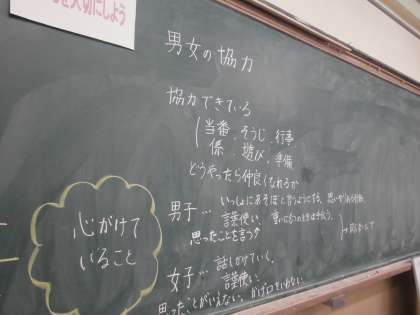 を大切にしよう
男女の協力
協力できている
当番、そうじ、行事
係、遊び、準備
どうやったら仲良くなれるか
男子… いっしょにあそぼと言うようにする、
言葉使い、重いものを
思ったことを言う
女子… 話しかけていく、
言葉使い、
思ったことがいえない、
心がけて
いること